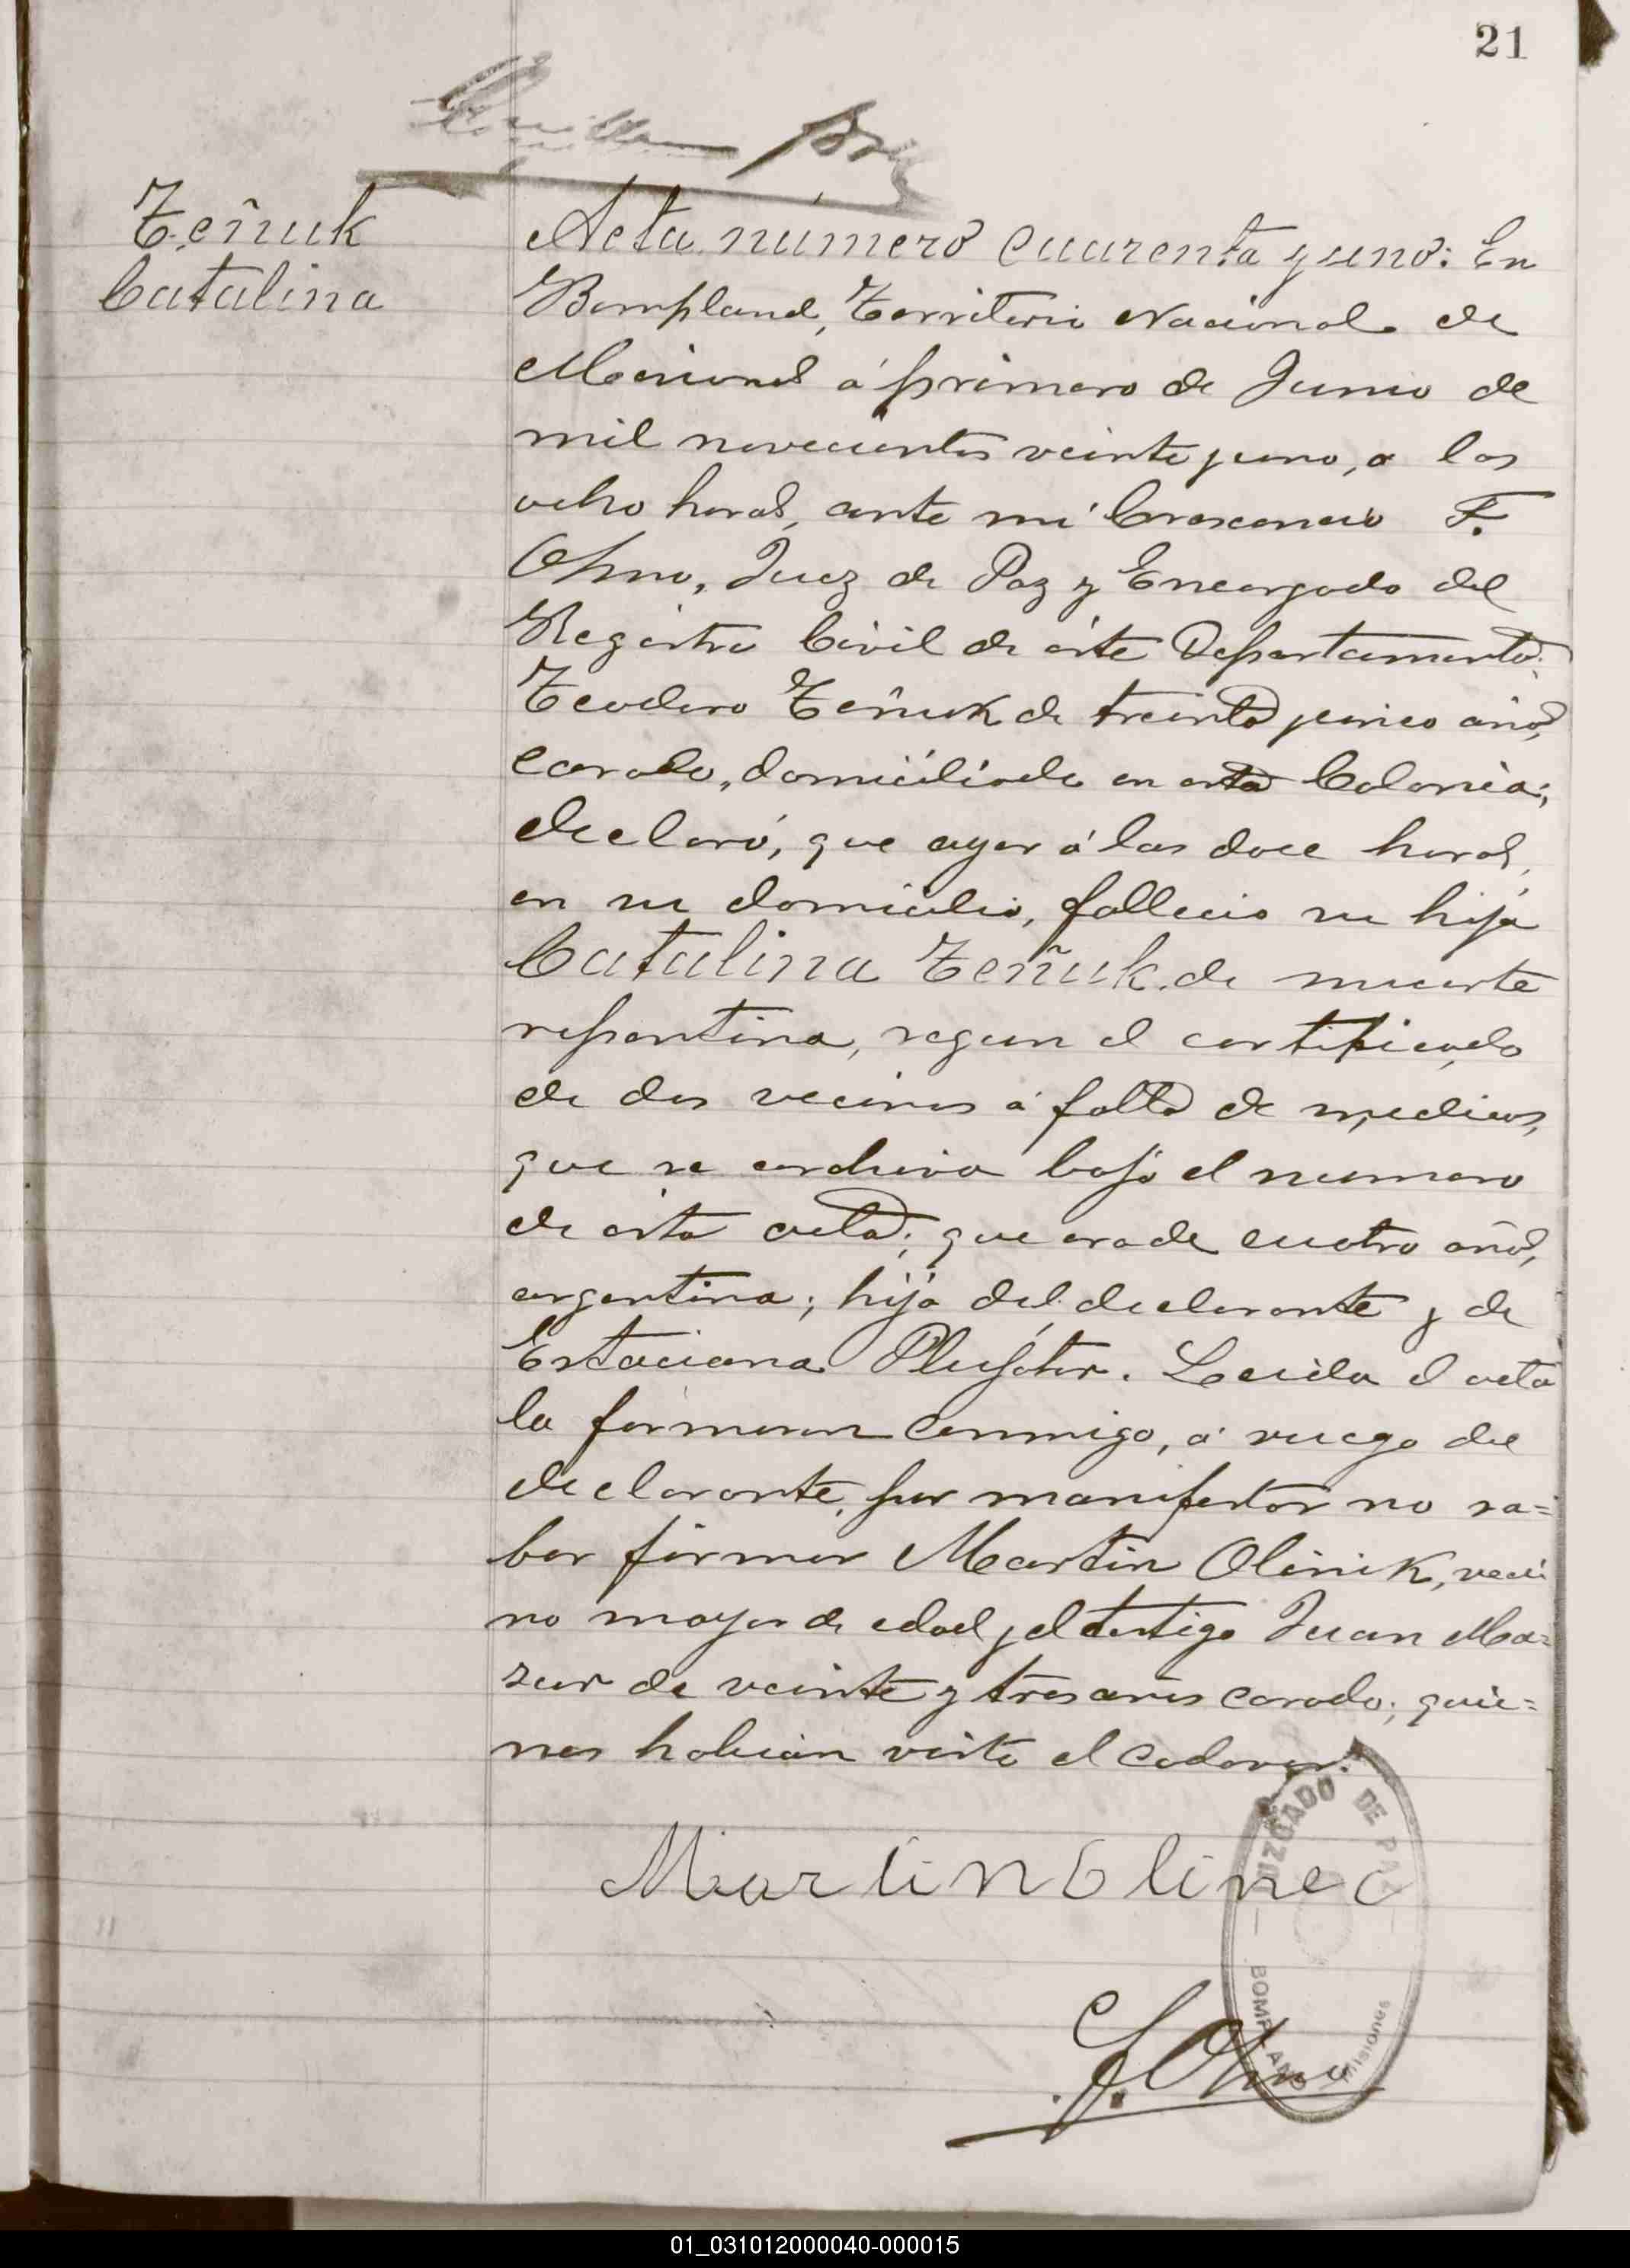 21
Teñuk
Catalina
Acta número cuarenta y uno: En
Bompland, Territorio Nacional de
Misiones á primero de Junio de
mil novecientos veinte y uno, a las
ocho horas, ante mi Crescencio F.
Ohno, Juez de Paz y Encargado del
Registro Civil de éste Departamento:
Teodoro Teñuk de treinta y cinco años,
casado, domiciliado en esta Colonia;
declaró, que ayer á las doce horas,
en su domicilio, fallecio su hija
Catalina Teñuk de muerte
repentina, segun el certificado
de dos vecinos á falta de medicos,
que se archiva bajo el numero
de esta acta; que era de cuatro años,
argentina; hija del declarante y de
Estaciana. Leida el acta
la firmaron conmigo, á ruego del
declarante, por manifestar no sa=
ber firmar Martin Olinik, veci
no mayor de edad y el testigo Juan Ma=
zur de veinte y tres años casado; quie=
nes habian visto el cadaver.
Martin Olinec
JUZGADO DE PAZ
BOMPLAND Misiones
01_031012000040-000015